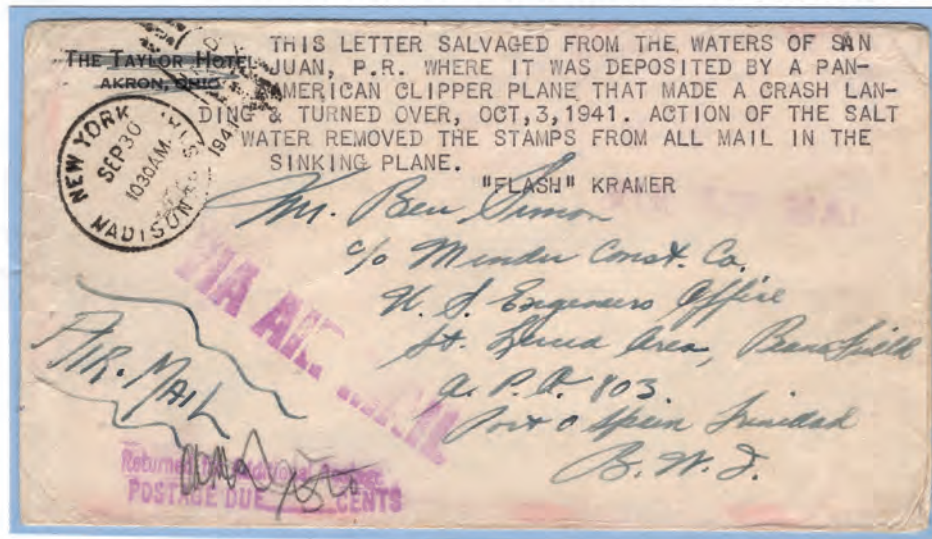 THE TAYLOR HOTEL
AKRON, OHIO
THIS LETTER SALVAGED FROM THE WATERS OF SAN
JUAN, P.R. WHERE IT WAS DEPOSITED BY A PAN-
AMERICAN CLIPPER PLANE THAT MADE A CRASH LAN-
DING & TURNED OVER, OCT,3,1941. ACTION OF THE SALT
WATER REMOVED THE STAMPS FROM ALL MAIL IN THE
SINKING PLANE.
"FLASH" KRAMER
NEW YORK
SEP 30
1030AM
1941
MADISON SQ.
Mr. Ben Simon
c/o Minder Const. Co.
U. S. Engineers Office
St. Lucia Area, Beane Field
A. P. O. 803.
Port O Spain Trinidad
B. W. I.
VIA AIR MAIL
AIR. MAIL
Returned for Additional Postage
POSTAGE DUE CENTS